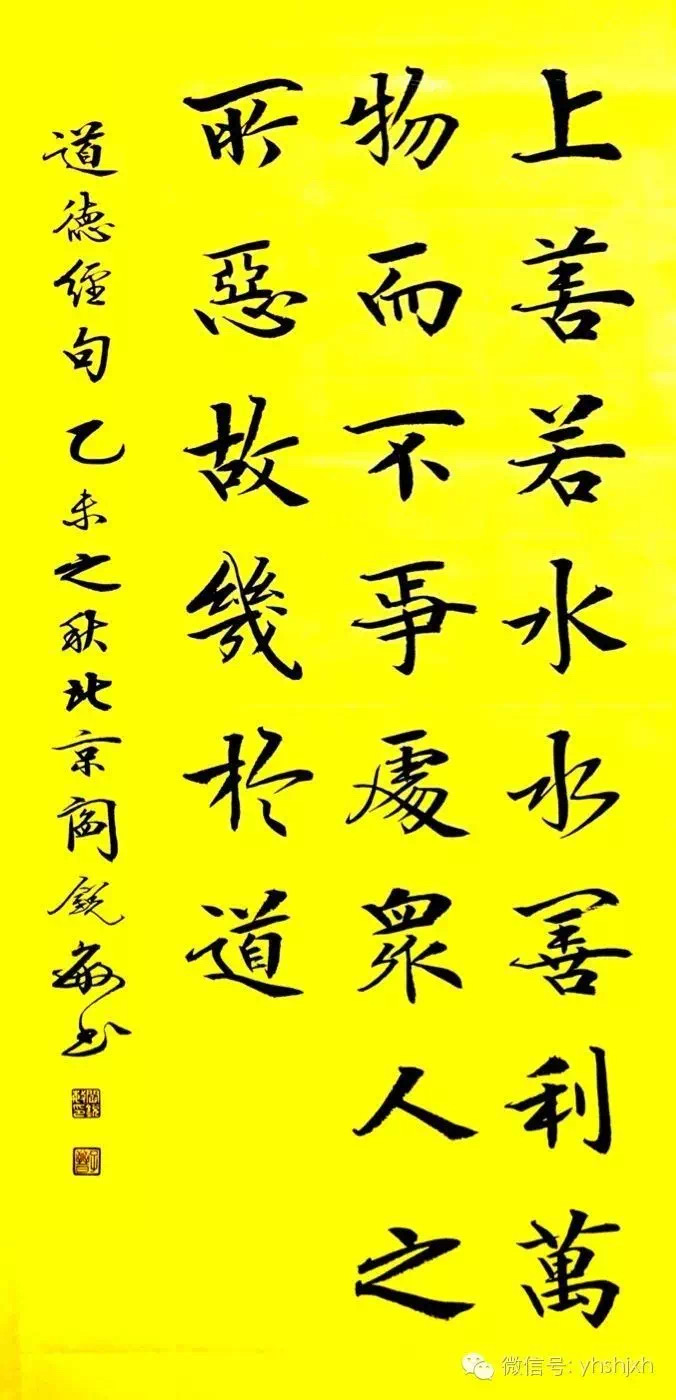 上善若水水善利萬
物而不爭處衆人之
所惡故幾於道
道德經句乙未之秋北京閻銳敏书
微信号: yhshjxh